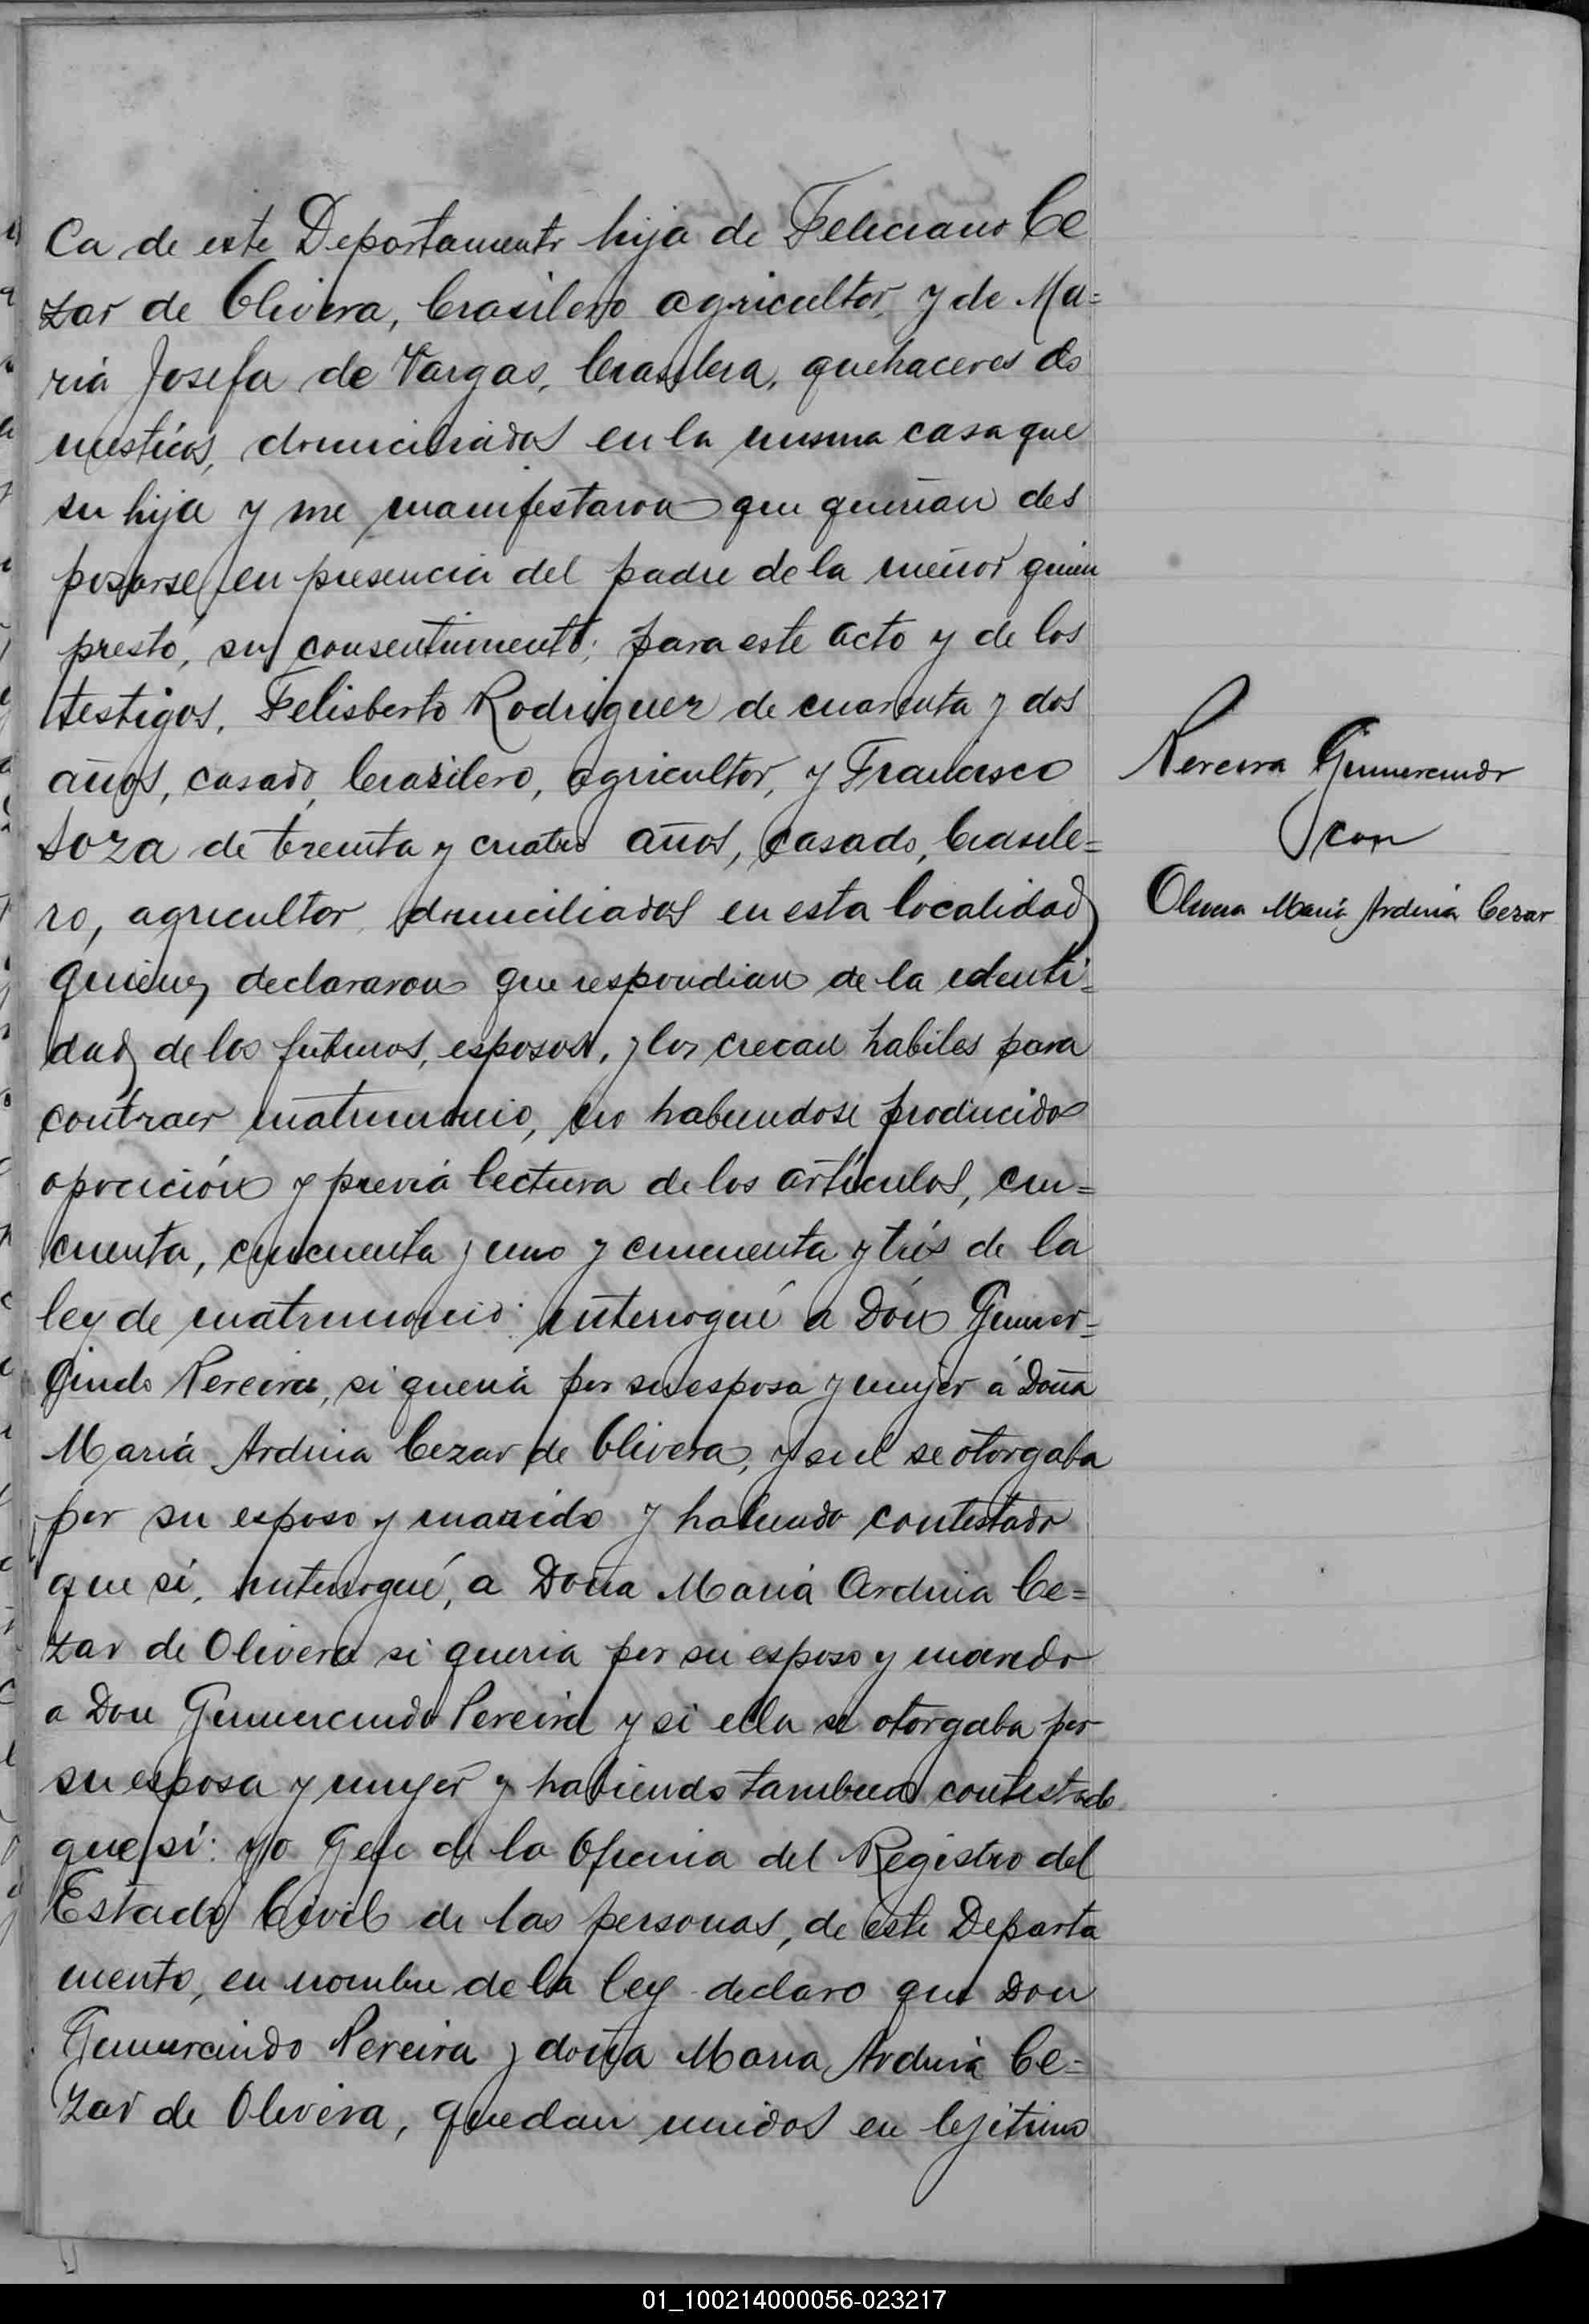 Ca de este Departamento hija de Feliciano Ce
zar de Olivera, brasilero agricultor, y de Ma=
ria Josefa de Vargas, brasilera, quehaceres do
mesticos, domiciliados en la misma casa que
su hija y me manifestaron que querian des
posarse en presencia del padre de la menor quien
prestó, su consentimiento; para este acto y de los
testigos, Felisberto Rodriguez de cuarenta y dos
años, casado, brasilero, agricultor, y Francisco
Soza de treinta y cuatro años, casado, brasile=
ro, agricultor, domiciliados en esta localidad
quienes declararon que respondian de la identi=
dad de los futuros, esposos, y los creean habiles para
contraer matrimonio, no habiendose producido
oposición y previa lectura de los artículos, cin=
cuenta, cincuenta y uno y cincuenta y trés de la
ley de matrimonio: interrogué a Dón Gumer=
cindo Pereira, si queria por su esposa y mujer á Doña
Maria Ardina Cezar de Olivera, y si el se otorgaba
por su esposo y marido y habiendo contestado
que sí, interrogué, a Doña Maria Ardina Ce=
zar de Olivera si queria por su esposo y marido
a Don Gumercindo Pereira y si ella se otorgaba por
su esposa y mujer y habiendo tambien contestado
que sí: yo Gefe de la Oficina del Registro del
Estado Civil de las personas, de este Departa
mento, en nombre de la ley declaro que Don
Gumercindo Pereira y doña Maria Ardina Ce=
zar de Olivera, quedan unidos en lejitimo
Pereira Gumercindo
con
Olivera Maria Ardina Cezar
01_100214000056-023217